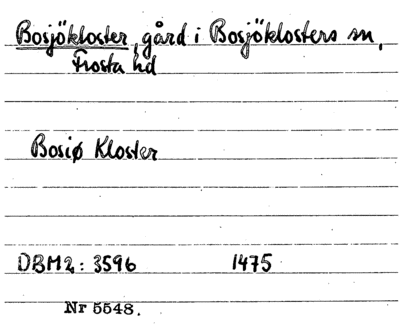 Bosjökloster, gård i Bosjöklosters sn,
Frosta hd
Bosiø Kloster
DBM2: 3596 1475
Nr 5548.